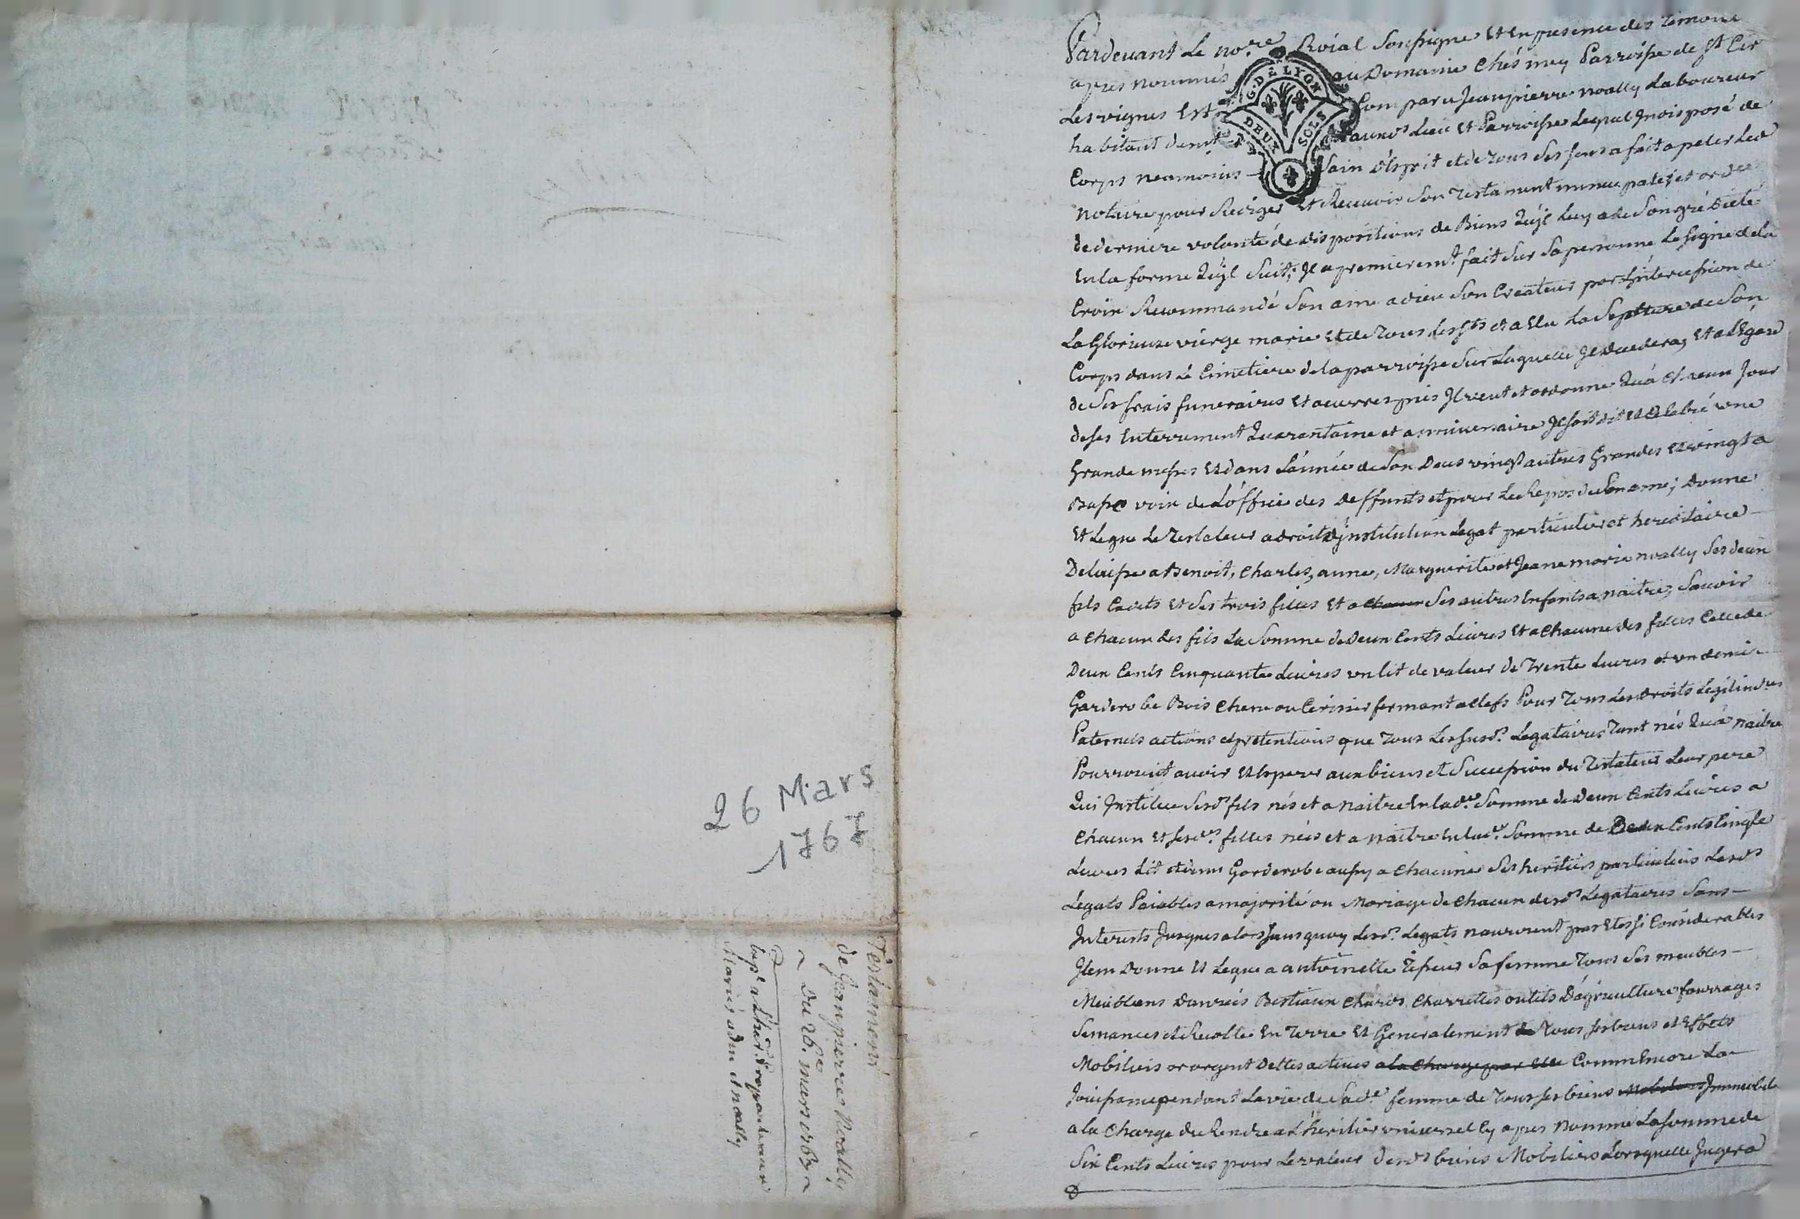 26 Mars
1767
Testament
de Jeanpierre Noally
Du 26e mars 1767
Pardevant Le nore Roial Soussigné Et En presence des temoins
apres nommés au Domaine Chés Mey Parroisse de St Cir
Les vignes Est Comparu Jeanpierre noally Laboureur
habitant dans Lieu Et Parroisse Lequel Indisposé de
Corps neamoins Sain d'Esprit et de tous Ses Sens a fait apeler Led
Notaire pour Rediger Et Recevoir Son Testament nuncupatif et ordce
de derniere volonté de dispositions de Biens Qu'jl Luy a de Son gré Dicté
En la forme Qu'jl Suit; Jl a premieremt fait Sur Sa personne Le Signe de la
Croix Recommandé Son ame a dieu Son Createur par L'jntercession de
La Glorieuse viérge marie Et de tous Les Sts et a Elu La Sepulture de Son
Corps dans Le Cimetiere de la parroisse Sur Laquelle Jl decedera, Et a L'Egard
de Ses frais funeraires Et oeuvres pies Jl veut et ordonne Qu'a Chacun Jour
de Ses Enterrement Quarantaine et anniversaire Jl Soit dit Et Celebré une
Grande messe Et dans L'année de Son Deces vingt autres Grandes Et vingt a
Basse voix de L'office des Deffunts et pour Le Repos de Son ame; Donne
Et Legue Le Testateur a droit d'jnstitution Legat particulier et hereditaire
Delaisse a Benoit, Charles, anne, Marguerite et Jeane marie noally Ses deux
fils Cadets Et Ses trois filles Et a Chacun Ses autres Enfants a naitre, Savoir
a Chacun des fils La Somme de Deux Cents Livres Et a Chacune des filles Celle de
Deux Cents Cinquante Livres un Lit de valeur de Trente Livres et un demi
Garderobe Bois Chene ou Cerisier fermant a Clefs Pour Tous Les Droits Legitimres
Paternels actions et pretentions que tous Les Susd. Legataires Tant nés Qu'a naitre
Pourroient avoir Et Esperer aux biens et Succession du Testateur Leur pere
Qui Jnstitue Sesd. fils nés et a naitre En lade Somme de Deux Cents Livres a
Chacun Et Sesdes filles nées et a naitre En lade Somme de Deux Cents Cinqte
Livres Lit et demi Garderobe aussy a Chacune Ses heritiers particuliers Lesds
Legats Paiables a majorité ou Mariage de Chacun desds Legataires Sans
Jnterests Jusques alors Jusquoy Lesd. Legats
Jtem Donne Et Legue a antoinette Sa femme Tous Ses meubles
Meublans Danrées Bestiaux Chars Charrettes outils D'agriculture fourrages
Semances et Recolte En Terre Et Generalement de Tous Ses biens et Effets
Mobiliers or argent Dettes actives a la Charge par Elle Comm'Encore La
Jouissance pendant La vie de Sade femme de Tous Ses biens Mobiliers Jmmeubles
a la Charge de Rendre a L'heritier universel Cy apres Nommé La Somme de
Six Cents Livres pour La valeur desds biens Mobiliers Lorsquelle Jugera
G. DE LYON
DEUX SOLS